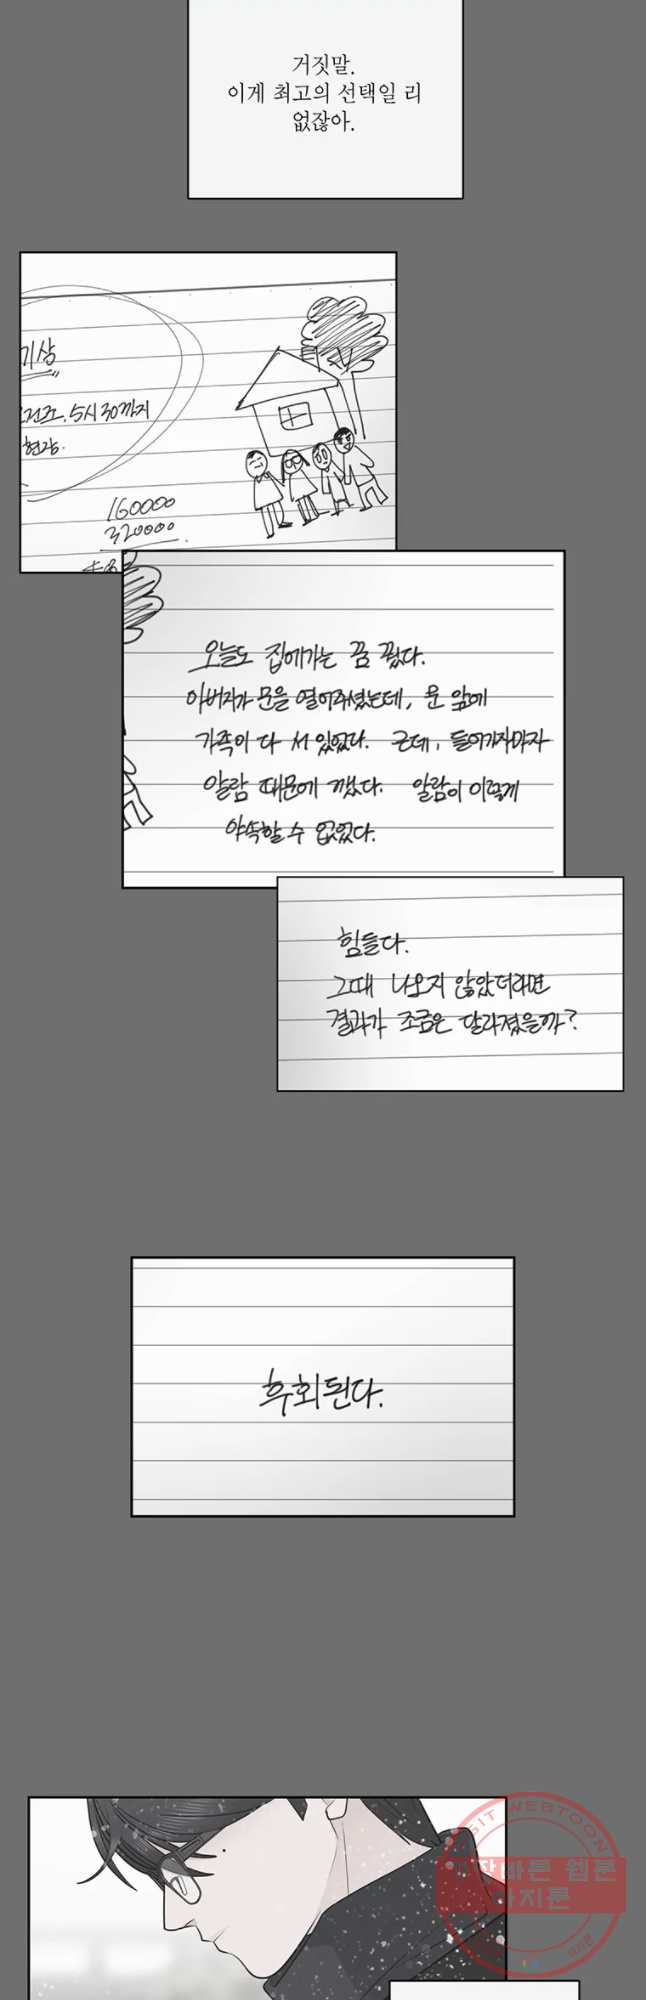 거짓말.
이게 최고의 선택일 리
없잖아.
기상
5시 30까지
현장.
160000
320000
오늘도 집에가는 꿈 꿨다.
아버지가 문을 열어주셨는데, 문 앞에
가족이 다 서 있었다. 근데, 들어가자마자
알람 때문에 깼다. 알람이 이렇게
야속할 수 없었다.
힘들다.
그때 나오지 않았더라면
결과가 조금은 달라졌을까?
후회된다.
SIT WEBTOON
빠른 웹툰
마지툰